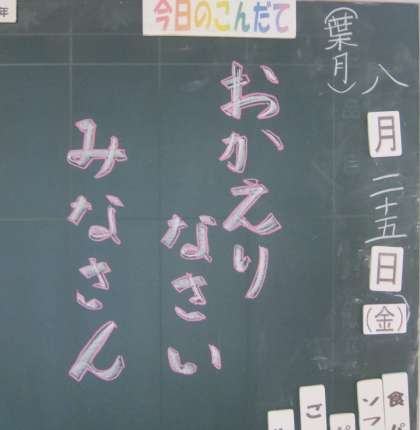 年
今日のこんだて
(葉月)
八月二十五日(金)
おかえり
なさい
みなさん
ご
パ
ソフ
食パ